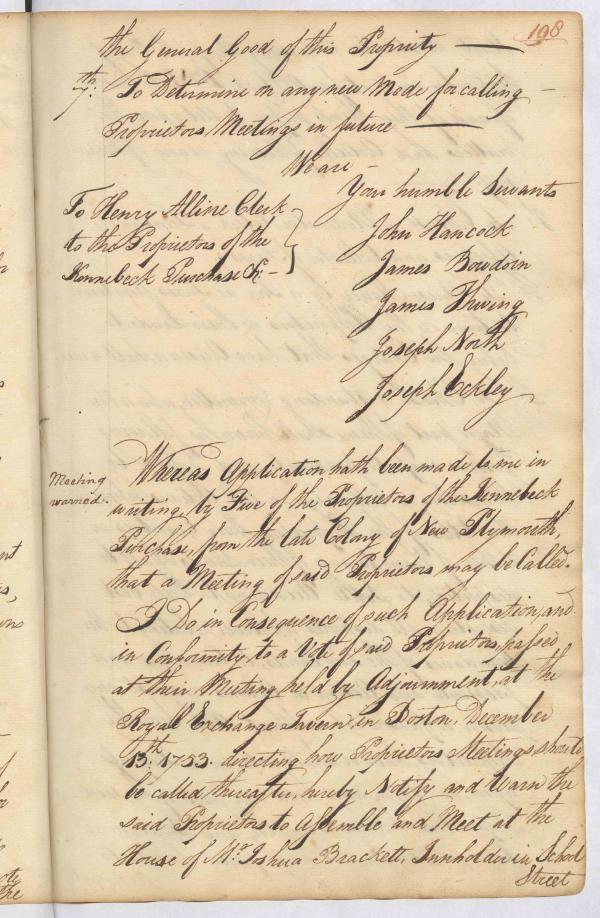 198
the General Good of this Propriety —
7.th To Determine on any new Mode for calling —
Proprietors Meetings in future —
We are —
Your humble Servants
To Henry Alline Clerk
to the Proprietors of the
Kennebeck Purchase &c. —
John Hancock
James Bowdoin
James Thwing
Joseph North
Joseph Eckley
Meeting
warned.
Whereas Application hath been made to me in
writing, by Five of the Proprietors of the Kennebeck
Purchase, from the late Colony of New Plymouth,
that a Meeting of said Proprietors may be Called.
I Do in Consequence of such Application, and
in Conformity to a Vote of said Proprietors, passed
at their Meeting held by Adjournment, at the
Royall Exchange Tavern, in Boston, December
13.th 1753. directing how Proprietors Meetings should
be called thereafter, hereby Notify and Warn the
said Proprietors to Assemble and Meet at the
House of Mr. Joshua Brackett, Innholder in School
Street